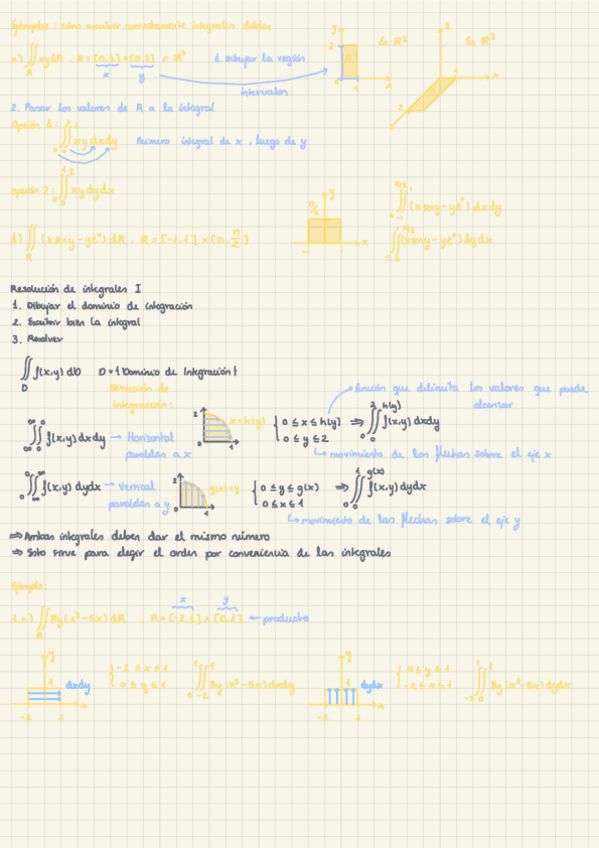 Ejemplos: cómo escribir correctamente integrales dobles
a) ∬_R xy dR , R = [0,1] × [0,2] ⊂ ℝ² 1. Dibujar la región
x y
intervalos
En ℝ² En ℝ³
2. Pasar los valores de R a la integral
Opción 1: ∫₀² ∫₀¹ xy dxdy Número integral de x, luego de y
Opción 2: ∫₀¹ ∫₀² xy dydx
d) ∬_R (x sen y − y eˣ) dR , R = [-1,1] × [0, π/2]
∫₀^{π/2} ∫₋₁¹ (x sen y − y eˣ) dxdy
∫₋₁¹ ∫₀^{π/2} (x sen y − y eˣ) dydx
Resolución de integrales I
1. Dibujar el dominio de integración
2. Escribir bien la integral
3. Resolver
∬_D f(x,y) dD D = {Dominio de Integración}
Dirección de
Integración:
función que delimita los valores que puede
alcanzar
∬ f(x,y) dxdy → Horizontal
paralelas a x
x = h(y)
{ 0 ≤ x ≤ h(y)
0 ≤ y ≤ 2
⇒ ∫₀² ∫₀^{h(y)} f(x,y) dxdy
movimiento de las flechas sobre el eje x
∬ f(x,y) dydx → Vertical
paralelas a y
g(x) = y
{ 0 ≤ y ≤ g(x)
0 ≤ x ≤ 1
⇒ ∫₀¹ ∫₀^{g(x)} f(x,y) dydx
movimiento de las flechas sobre el eje y
⇒ Ambas integrales deben dar el mismo número
⇒ Solo sirve para elegir el orden por conveniencia de las integrales
Ejemplo:
x y
∬_R 8y(x³ − 5x) dR , R = [-2,1] × [0,1] ← producto
dxdy
{ -2 ≤ x ≤ 1
0 ≤ y ≤ 1
∫₀¹ ∫₋₂¹ 8y(x³ − 5x) dxdy
dydx
{ 0 ≤ y ≤ 1
-2 ≤ x ≤ 1
∫₋₂¹ ∫₀¹ 8y(x³ − 5x) dydx